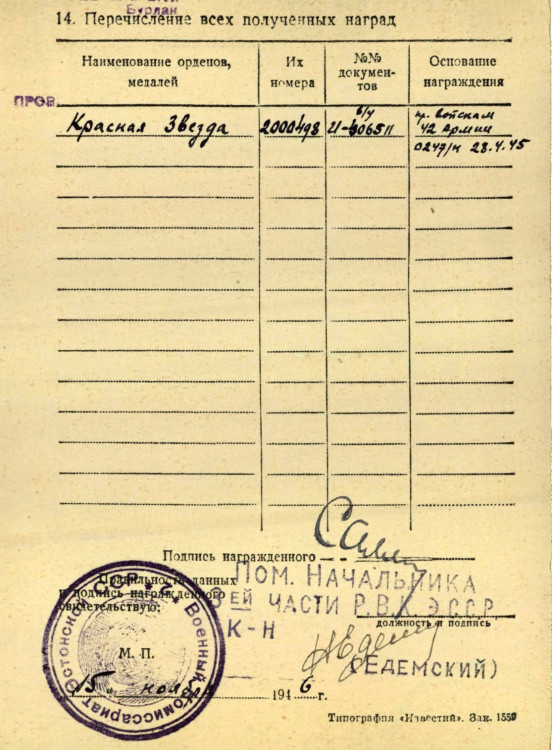 Бурлан
14. Перечисление всех полученных наград
Наименование орденов, медалей
Их номера
№№ документов
Основание награждения
ПРОВ.
Красная Звезда
2000498
б/у
пр. войскам
42 Армии
0247/н 28.4.45
Подпись награжденного
Правильность данных
и подпись награжденного
свидетельствую:
ПОМ. НАЧАЛЬНИКА
3ЕЙ ЧАСТИ Р.В.К. ЭССР
должность и подпись
К-Н
(ЕДЕМСКИЙ)
М. П.
Военный Комиссариат Эстонской ССР
15 " ноября 1946 г.
Типография «Известий». Зак. 1559